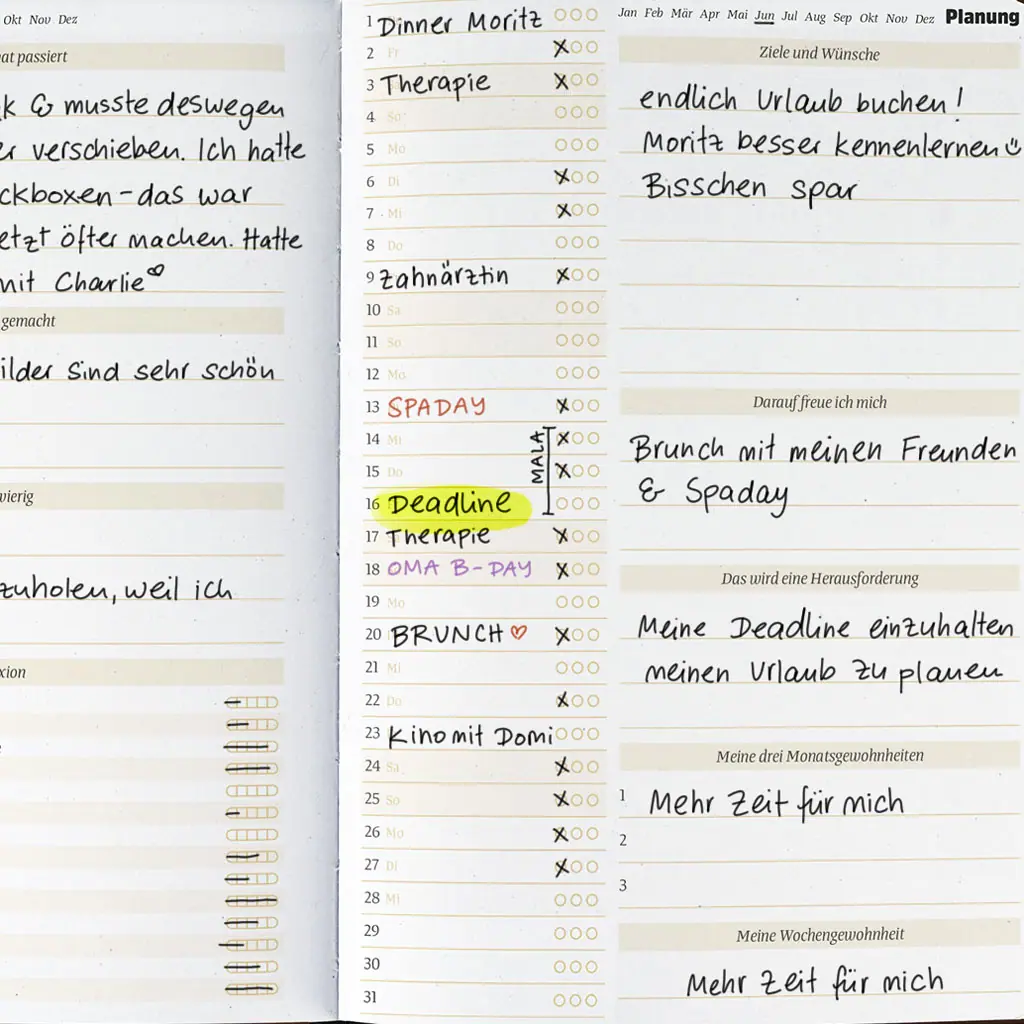 Okt Nov Dez
at passiert
k & musste deswegen
er verschieben. Ich hatte
ckboxen - das war
etzt öfter machen. Hatte
mit Charlie
gemacht
ilder sind sehr schön
wierig
zuholen, weil ich
xion
1 Dinner Moritz
2 Fr X
3 Therapie X
4 Sa
5 Mo
6 Di X
7 Mi X
8 Do
9 Zahnärztin X
10 Sa
11 So
12 Mo
13 SPADAY X
14 Mi X
MALA
15 Do X
16 Deadline
17 Therapie X
18 OMA B-DAY X
19 Mo
20 BRUNCH ♡ X
21 Mi
22 Do X
23 Kino mit Domi
24 Sa X
25 So X
26 Mo X
27 Di X
28 Mi
29
30
31
Jan Feb Mär Apr Mai Jun Jul Aug Sep Okt Nov Dez Planung
Ziele und Wünsche
endlich Urlaub buchen!
Moritz besser kennenlernen
Bisschen spar
Darauf freue ich mich
Brunch mit meinen Freunden
& Spaday
Das wird eine Herausforderung
Meine Deadline einzuhalten
meinen Urlaub zu planen
Meine drei Monatsgewohnheiten
1 Mehr Zeit für mich
2
3
Meine Wochengewohnheit
Mehr Zeit für mich